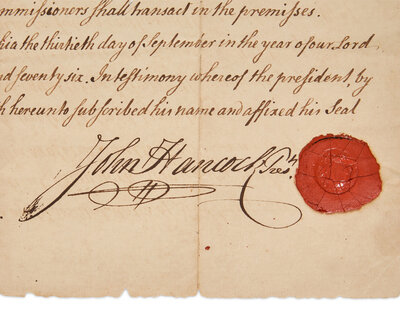 mmissioners shall transact in the premisses.
hia the thirtieth day of September in the year of our Lord
nd seventy six. In testimony whereof the president, by
h hereunto subscribed his name and affixed his Seal
John Hancock Presᵗ.